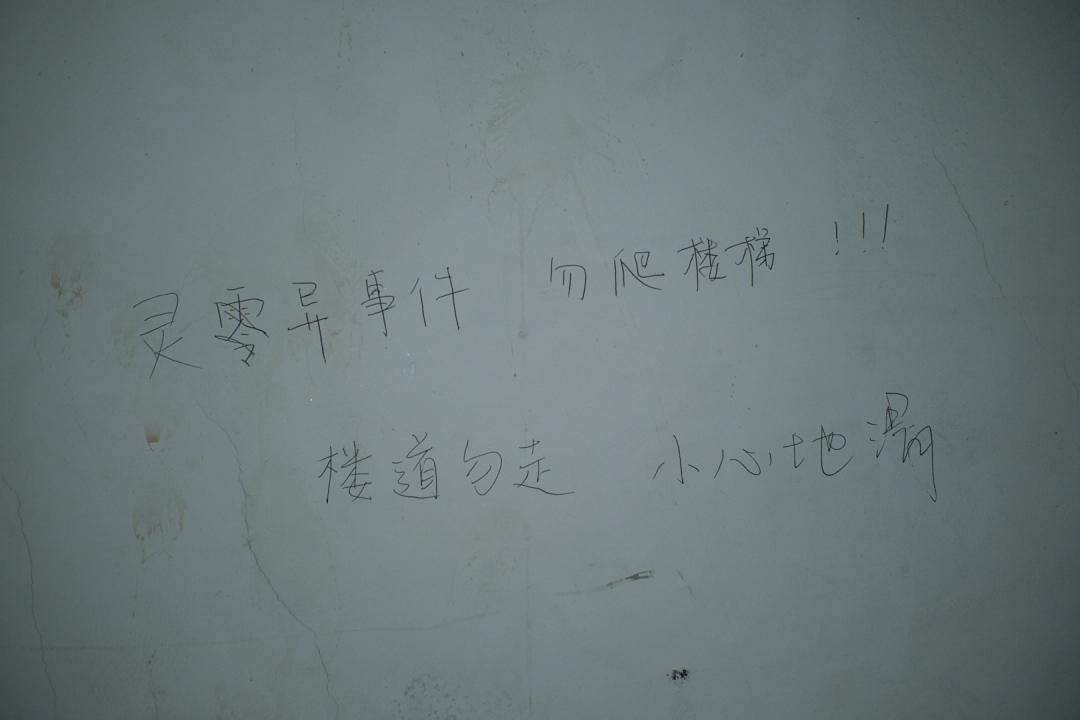 灵零异事件 勿爬楼梯!!!
楼道勿走 小心地滑